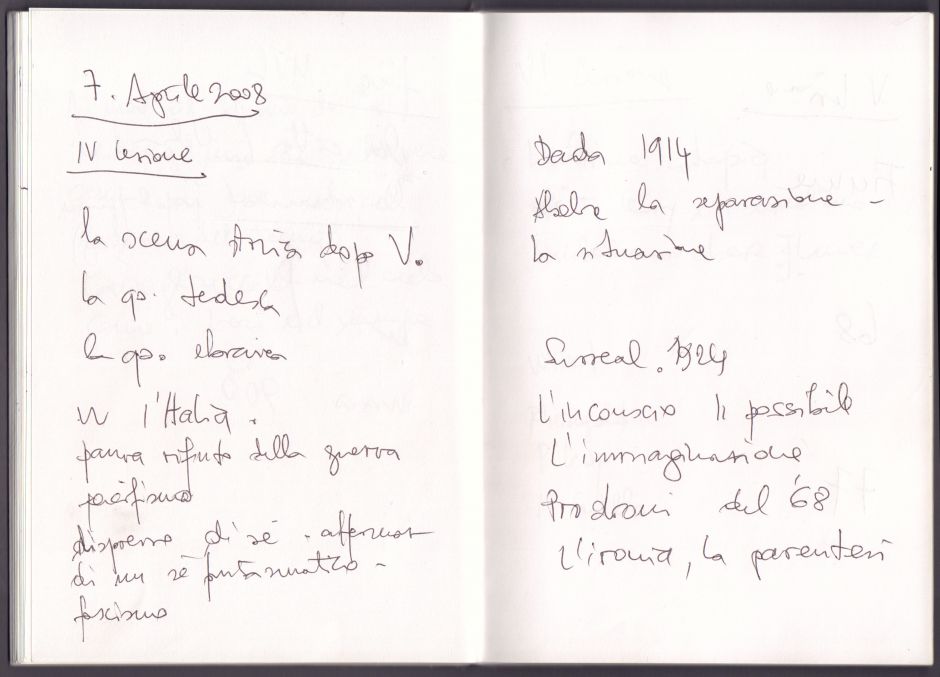 7. Aprile 2008
IV lezione
la scena storica dopo V.
la qs. tedesca
la qs. ebraica
W l'Italia.
paura rifiuto della guerra
pacifismo
disprezzo di sé. affermaz
di un sé fantasmatico -
fascismo
Dada 1914
la separazione -
la situazione
Surreal. 1924
l'inconscio Il possibile
L'immaginazione
Prodromi del '68
L'ironia, la parentesi